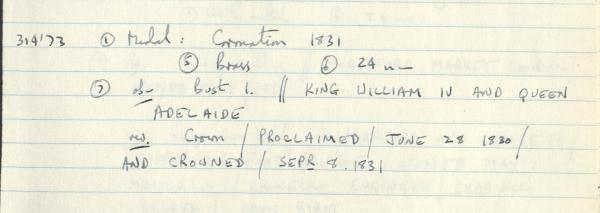 314'73 ① Medal : Coronation 1831
⑤ Brass ⑥ 24 mm
⑦ obv. Bust l. // KING WILLIAM IV AND QUEEN
ADELAIDE
rev. Crown / PROCLAIMED / JUNE 28 1830 /
AND CROWNED / SEPR 8. 1831